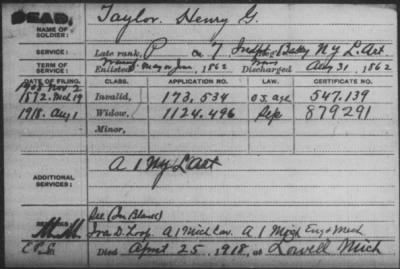 DEAD.
NAME OF SOLDIER:
Taylor, Henry G.
SERVICE:
Late rank, P Co. 7 Indpt Batty N Y L Art
TERM OF SERVICE:
Enlisted May or June, 1862 Discharged Aug 31, 1862
DATE OF FILING. CLASS. APPLICATION NO. LAW. CERTIFICATE NO.
1908 Nov 2
1872. 19 Invalid, 173.534 o.s. age 547.139
1918. Aug 1 Widow, 1124.496 Sep 879291
Minor,
ADDITIONAL SERVICES:
A 1 N Y L Art
REMARKS
Ira D. Loop. A 1 Mich Cav. A 1 Mich Eng & Mech
Died April 25, 1918, at Lowell Mich